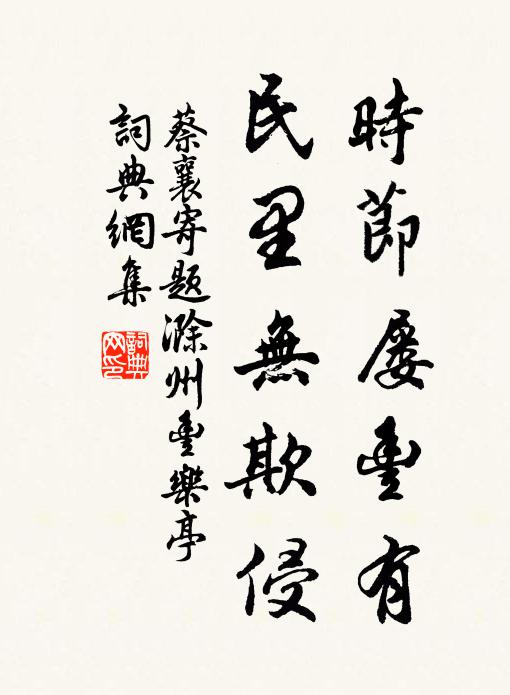 時節屡豊有
民里無欺侵
蔡襄寄題滁州豊樂亭
詞典網集
詞典
网印